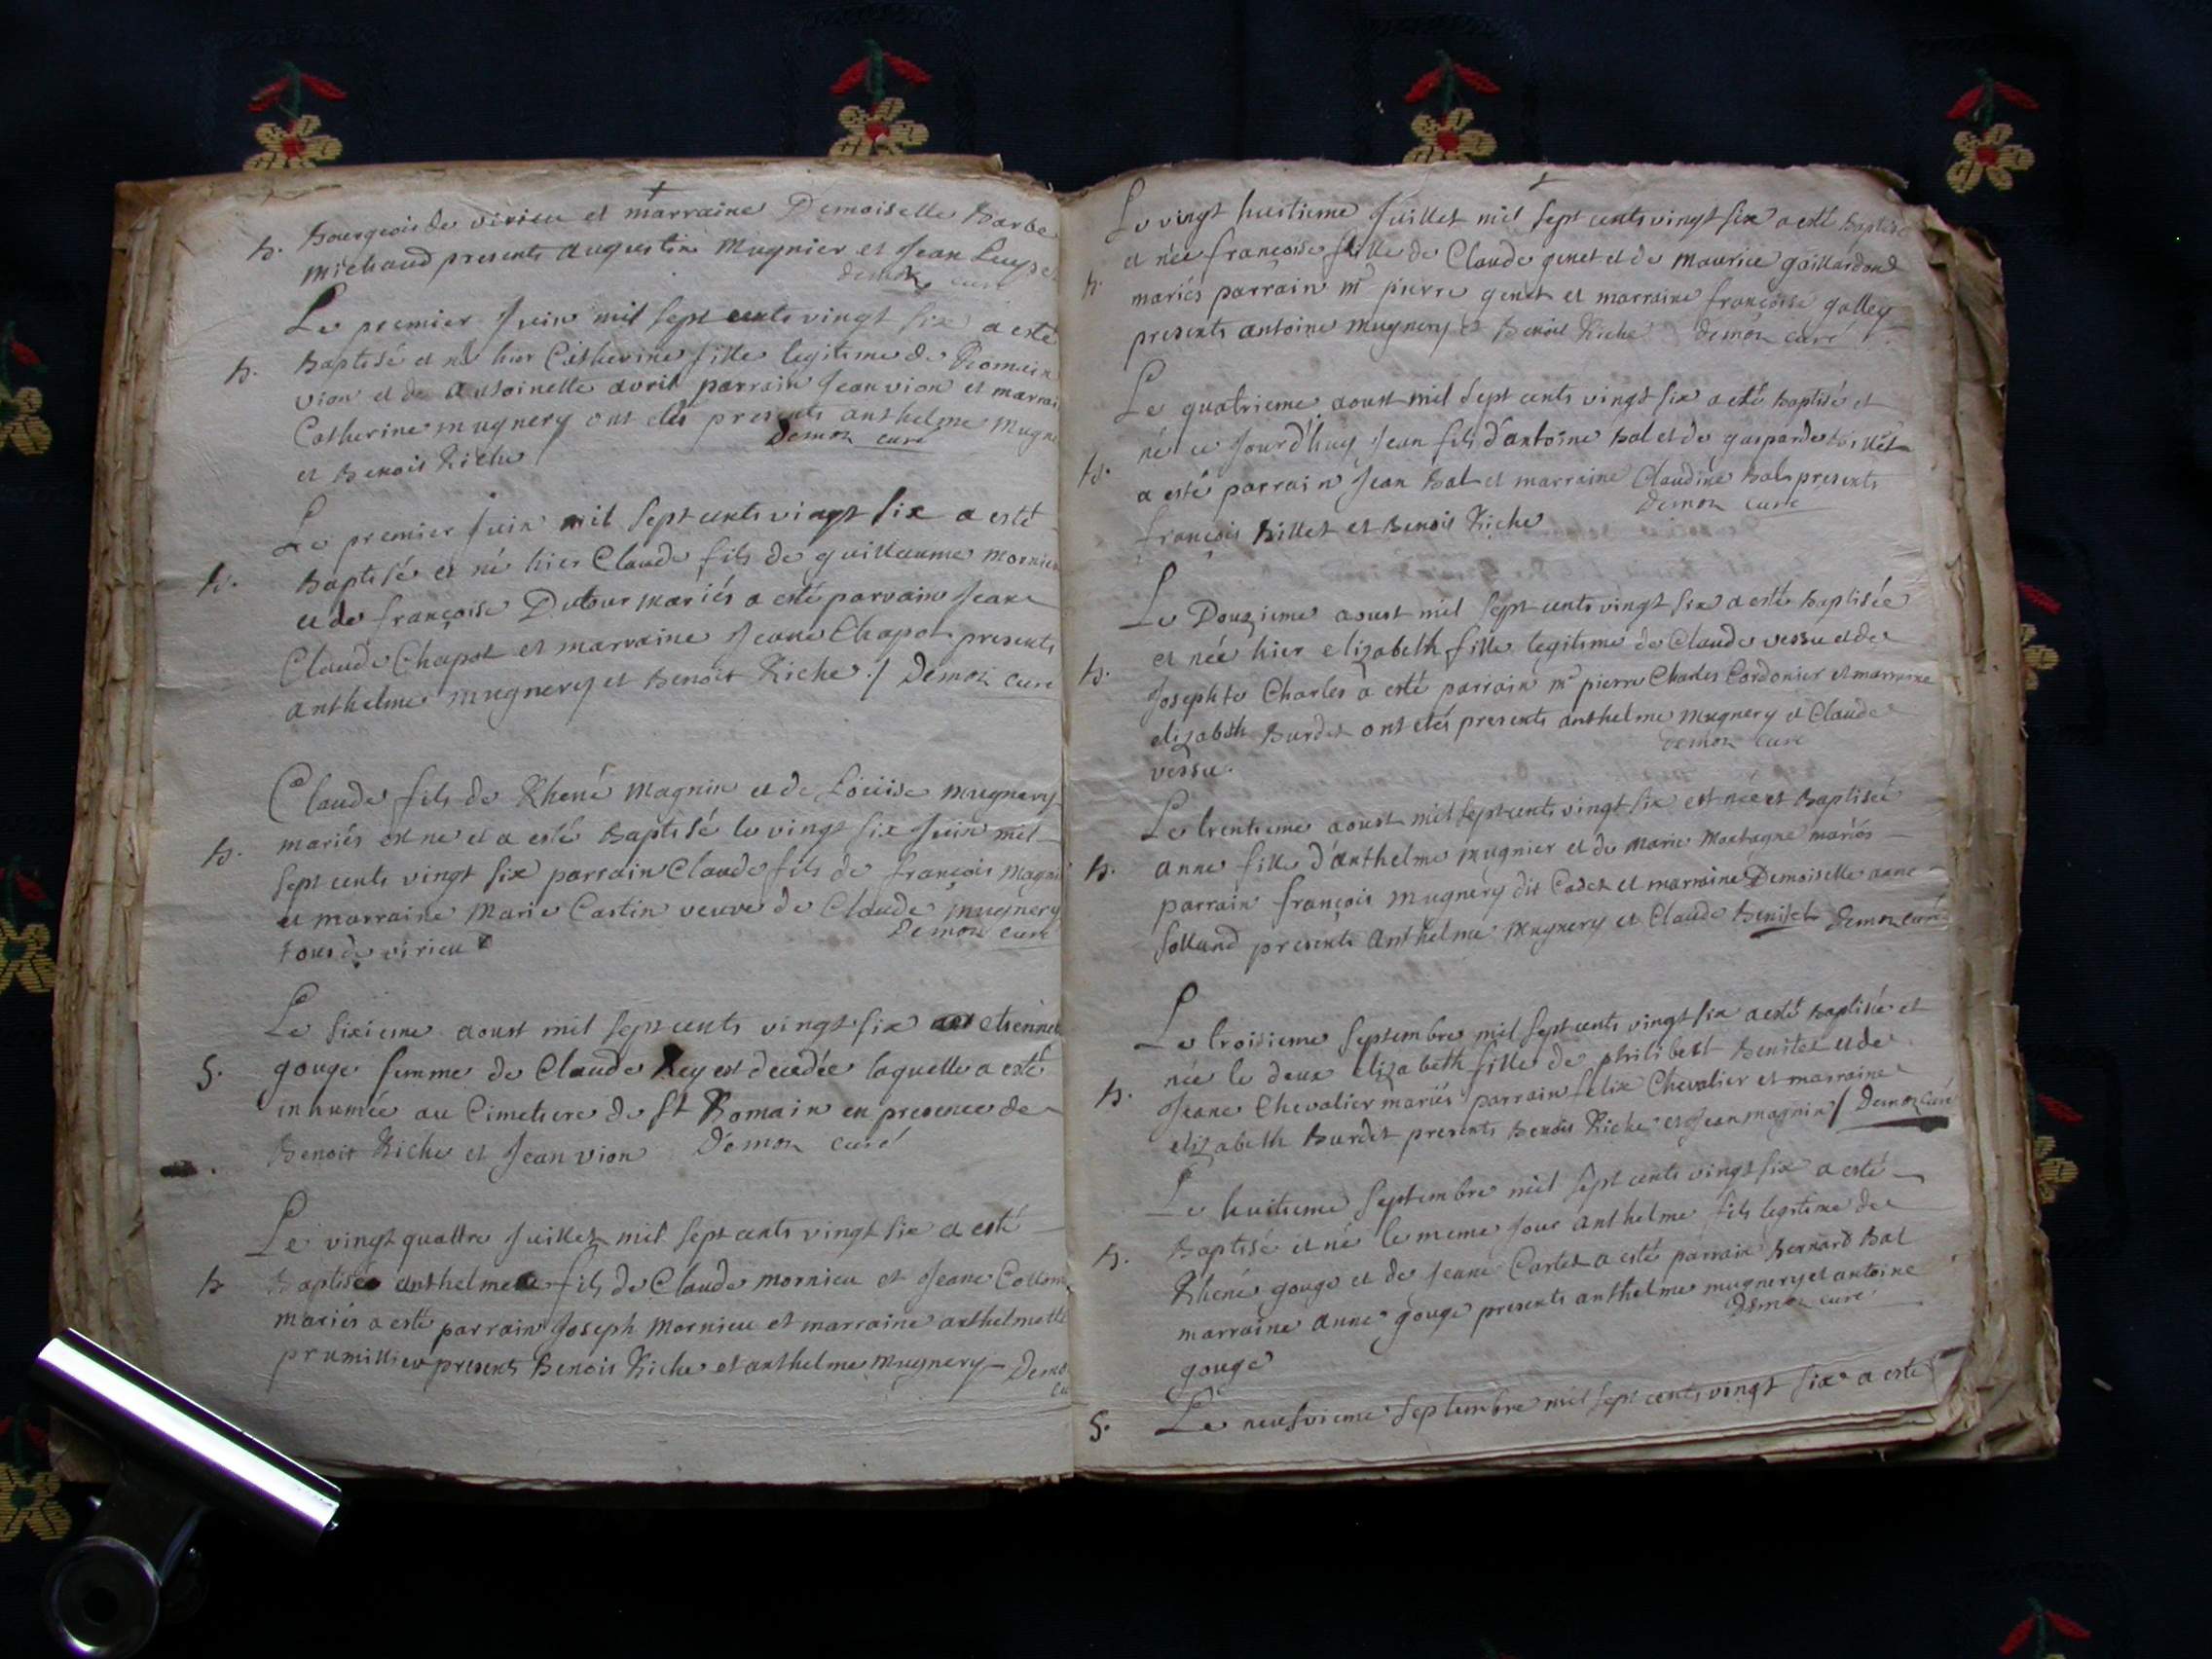 b. bourgeois de virieu et marraine Demoiselle barbe
michaud presents augustin mugnier et Jean
demon curé
Le premier Juin mil sept cents vingt six a esté
b. baptisé et né hier Catherine fille legitime de Romain
vion et de antoinette avril parrain Jean vion et marrai
Catherine mugnery ont estés presents anthelme mugne
et benoit Riche
demon curé
Le premier Juin mil sept cents vingt six a esté
b. baptisé et né hier Claude fils de guillaume mornieu
et de françoise Dutour mariés a esté parrain Jean
Claude Chapot et marraine Jeane Chapot presents
anthelme mugnery et benoit Riche ./ Demon curé
Claude fils de Rhené magnin et de Loüise mugnery
b. mariés est né et a esté baptisé le vingt six Juin mil
sept cents vingt six parrain Claude fils de françois magni
et marraine marie Castin veuve de Claude mugnery
tous de virieu
Demon curé
Le sixieme aoust mil sept cents vingt six etienne
S. gouge femme de Claude Rey est decedée laquelle a esté
inhumée au Cimetiere de St Romain en presence de
benoit Riche et Jean vion Demon curé
Le vingt quattre Juillet mil sept cents vingt six a esté
b baptisé anthelme fils de Claude mornieu et Jeane
mariés a esté parrain Joseph mornieu et marraine anthelmette
prumillieu presents benoit Riche et anthelme mugnery Demo
cu
Le vingt huitieme Juillet mil sept cents vingt six a esté baptisé
et née françoise fille de Claude genet et de maurice gaillardon
b. mariés parrain mr pierre genet et marraine françoise galley
presents antoine mugnery et benoit Riche demon curé
Le quatrieme aoust mil sept cents vingt six a esté baptisé et
né ce Jourd'huy Jean fils d'antoine bal et de gasparde billet
b. a esté parrain Jean bal et marraine Claudine bal presents
françois billet et benoit Riche
demon curé
Le Douzieme aoust mil sept cents vingt six a esté baptisée
et née hier elizabeth fille legitime de Claude vessu et de
b. Josephte Charles a esté parrain mr pierre Charles Cordonier et marraine
elizabeth burdet ont estés presents anthelme mugnery et Claude
vessu.
demon curé
Le trentieme aoust mil sept cents vingt six est née et baptisée
b. anne fille d'anthelme mugnier et de marie montagne mariés
parrain françois mugnery dit Cadet et marraine Demoiselle anne
solland presents anthelme mugnery et Claude benistel demon curé
Le troisieme septembre mil sept cents vingt six a esté baptisée et
née le deux elizabeth fille de philibert benitet et de
b. Jeane Chevalier mariés parrain felix Chevalier et marraine
elizabeth burdet presents benoit Riche et Jean magnin / Demon curé
Le huitieme septembre mil sept cents vingt six a esté
b. baptisé et né le meme Jour anthelme fils legitime de
Rhené gouge et de Jeane Cartet a esté parrain bernard bal
marraine anne gouge presents anthelme mugnery et antoine
gouge
demon curé
S. Le neufvieme septembre mil sept cents vingt six a esté